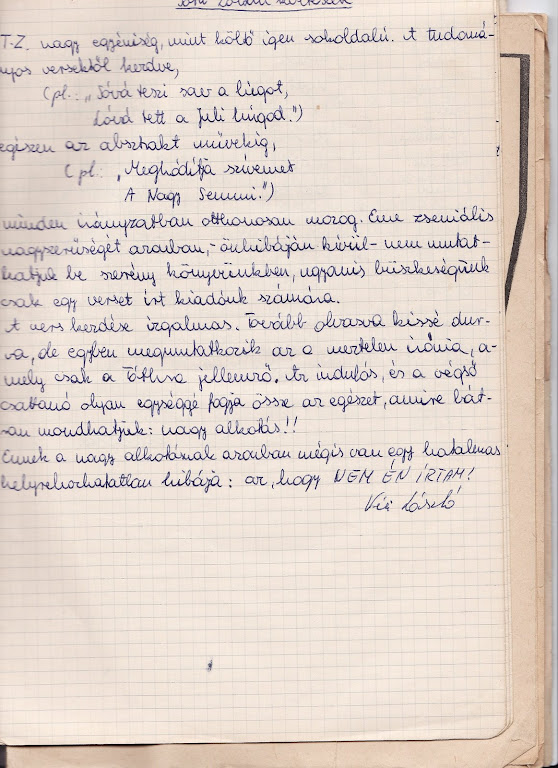 T-Z. nagy egyéniség, mint költő igen sokoldalú. A tudomá-
nyos versektől kezdve,
(pl.: „Sóvá teszi sav a lúgot,
Lóvá tett a Juli húgod.")
egészen az absztakt művekig,
(pl: „Meghódítja szívemet
A Nagy Semmi.")
minden irányzatban otthonosan mozog. Eme zseniális
nagyszerűségét azonban, - önhibáján kívül - nem mutat-
hatjuk be szerény könyvünkben, ugyanis büszkeségünk
csak egy verset írt kiadónk számára.
A vers kezdése irgalmas. Tovább olvasva kissé dur-
va, de egyben megmutatkozik az a mertelen irónia, a-
mely csak a Tóthra jellemző. Az indulós, és a végső
csattanó olyan egységgé fogja össze az egészet, amire bát-
ran mondhatjuk: nagy alkotás!!
Ennek a nagy alkotásnak azonban mégis van egy hatalmas
helyrehozhatatlan hibája: az, hogy NEM ÉN ÍRTAM!
László